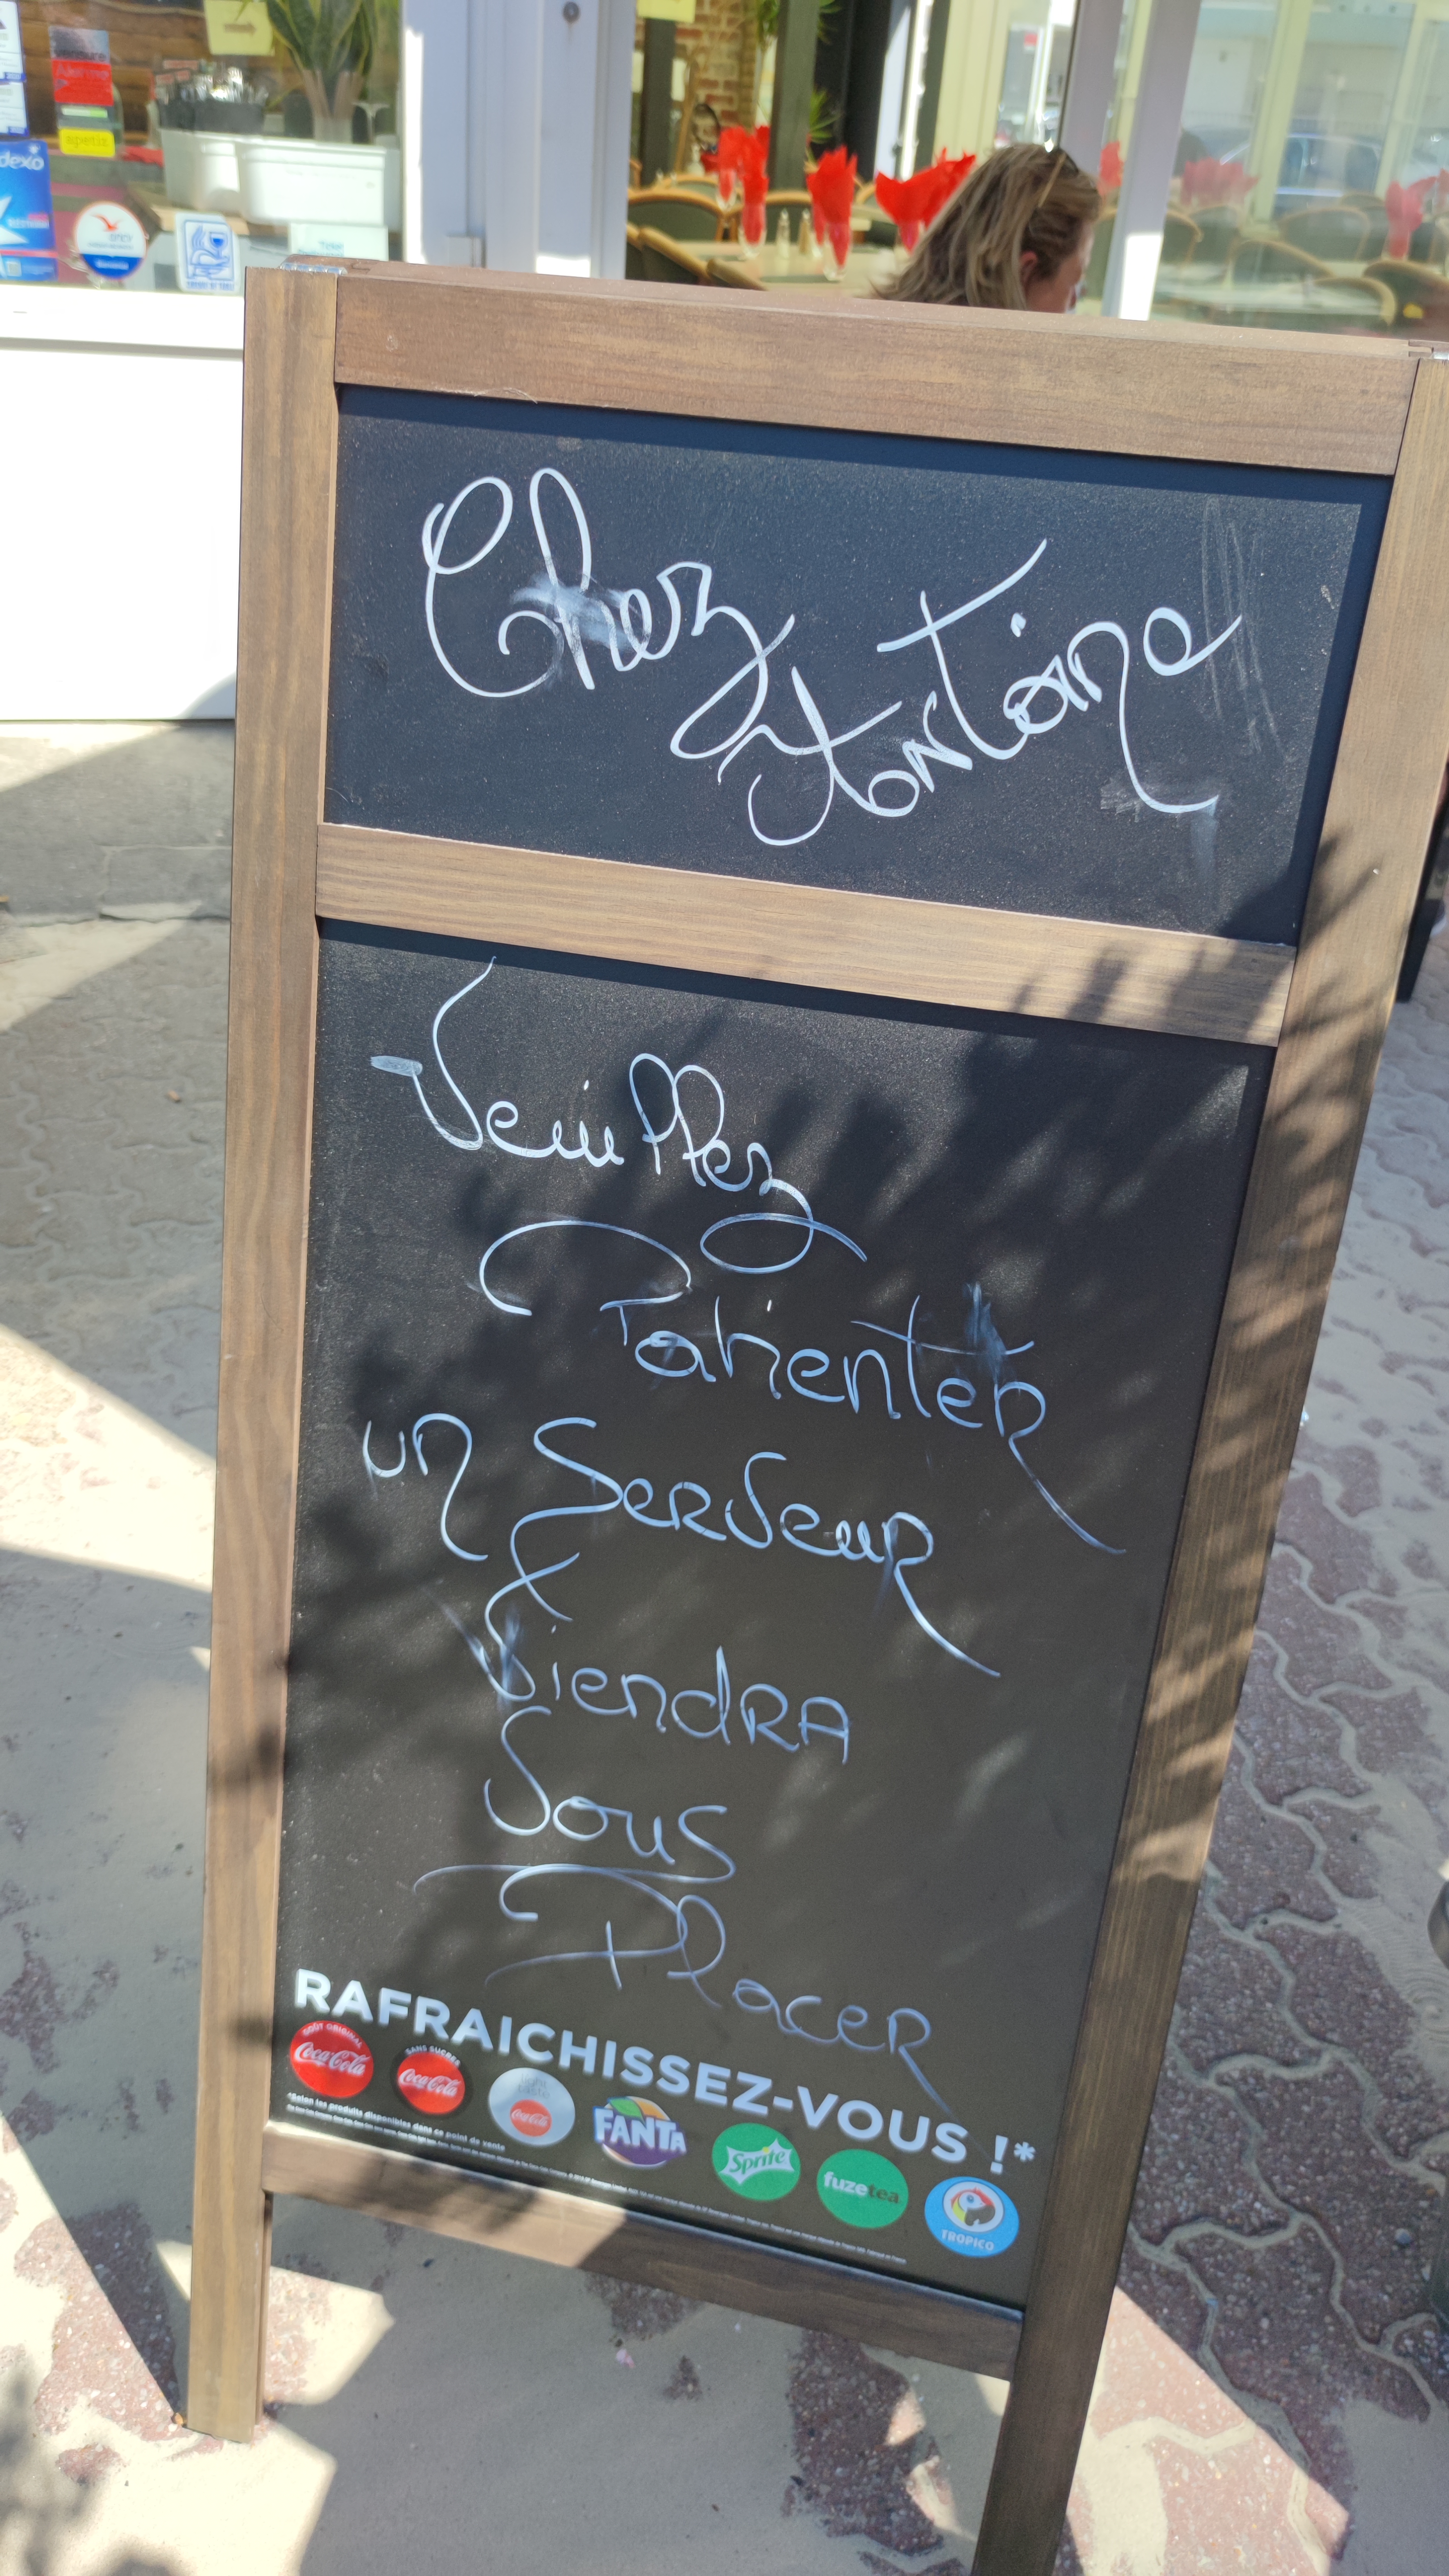 Chez
Antoine
Veuillez
Patienter
un Serveur
Viendra
Vous
Placer
RAFRAICHISSEZ-VOUS !*
GOÛT ORIGINAL
Coca-Cola
SANS SUCRES
Coca-Cola
light
taste
Coca-Cola
FANTA
Sprite
fuzetea
TROPICO
*Selon les produits disponibles dans ce point de vente
apetiz
dexo
ancv